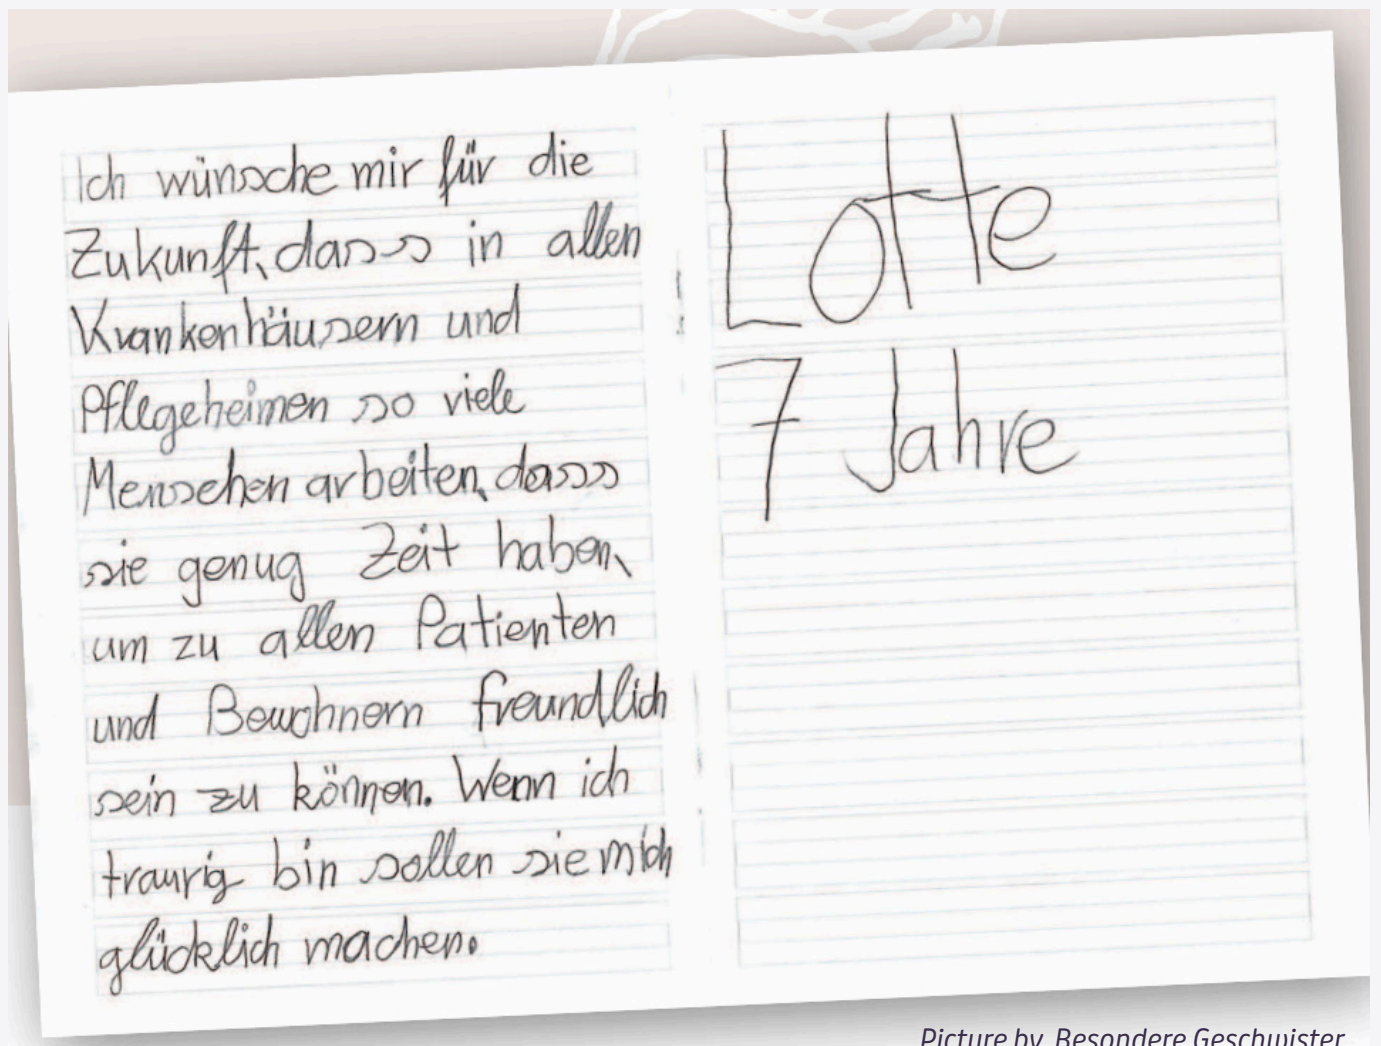 Ich wünsche mir für die
Zukunft, dass in allen
Krankenhäusern und
Pflegeheimen so viele
Menschen arbeiten, dass
sie genug Zeit haben,
um zu allen Patienten
und Bewohnern freundlich
sein zu können. Wenn ich
traurig bin sollen sie mich
glücklich machen.
Lotte
7 Jahre
Picture by Besondere Geschwister